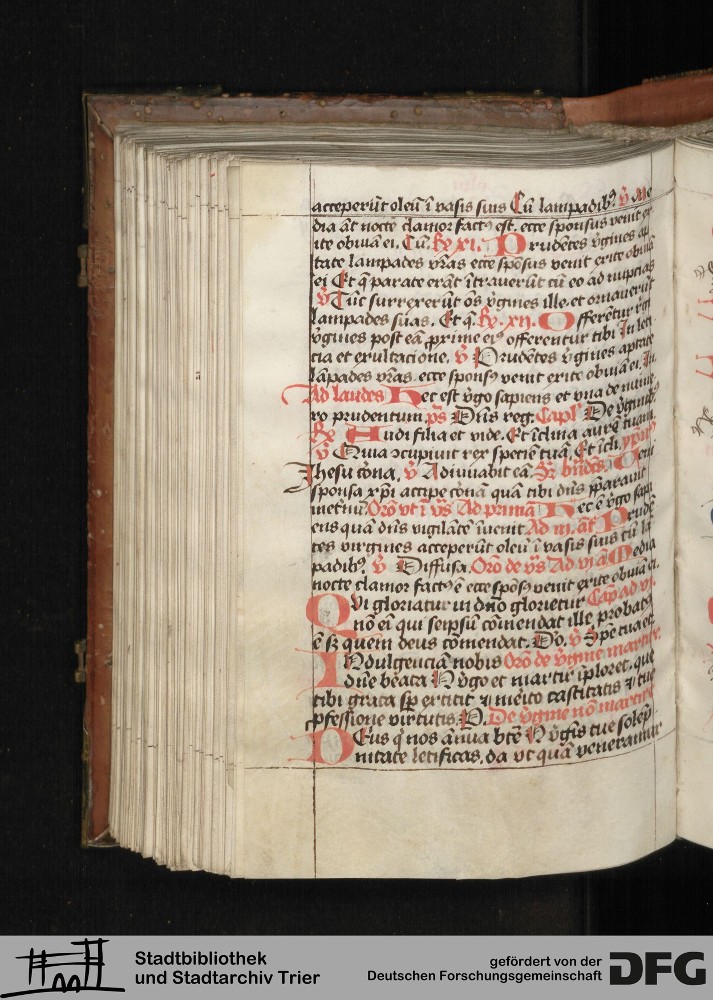 acceperūt oleū ī vasis suis Cū lampadibꝫ ℣ Me
dia āt nocte clamor factꝰ est. ecce sponsus venit ex
ite obuiā ei. Cū. R̸ xi. Prudētes v̄gines ap
tate lampades vr̄as ecce spōsus venit exite obuiā
ei Et q̄ parate erāt ītrauerūt cū eo ad nupcias
℣ Tūc surrexerūt oēs v̄gines ille. et ornauerūt
lampades suas. Et q̄. R̸. xii. Offerētur rēgi
v̄gines post eā ꝓxime eiꝰ offerentur tibi In leti
cia et exultacione. ℣ Prudētes v̄gines aptate
lāpades vr̄as. ecce sponsꝰ venit exite obuiā ei. In.
Ad laudes Hec est v̄go sapiens et vna de nūme
ro prudentum. pš Dn̄s reg. Capl̄ De v̄ginibꝫ
R̸ Audi filia et vide. Et īclina aurē tuam.
℣ Quia ɔcupiuit rex speciē tuā. Et īcli.
Jhesu corōna. ℣ Adiuuabit eā. Sꝫ bn̄dcs. Veni
sponsa xp̄i accipe coronā quā tibi dn̄s p̄parauit
inet'nū. Orō vt ī v̄s Ad primā Hec ē v̄go sapi
ens quā dn̄s vigilātē īuenit Ad iii. āt Prudē
tes virgines acceperūt oleū ī vasis suis cū lā
padibꝫ. ℣ Diffusa. Orō de v̄s Ad vi ā Media
nocte clamor factꝰ ē ecce spōsꝰ venit exite obuiā ei.
QVi gloriatur in dn̄o glorietur Cap̄ ad vi.
nō ei qui seipsū cōmendat ille probatꝰ
ē sꝫ quem deus cōmendat. Do. ℣ Spē tua et
INdulgenciā nobis Orō de v̄gine martire.
dn̄e beata N v̄go et martir īploret. que
tibi grata sp̄ extitit ⁊ mēito castitatis ⁊ tue
ꝓfessione virtutis. P. De v̄gine nō martire
DEus q̄ nos ānua bt̄e N v̄gīs tue solēp
nitate letificas. da vt quā veneramur
Stadtbibliothek
und Stadtarchiv Trier
gefördert von der
Deutschen Forschungsgemeinschaft
DFG